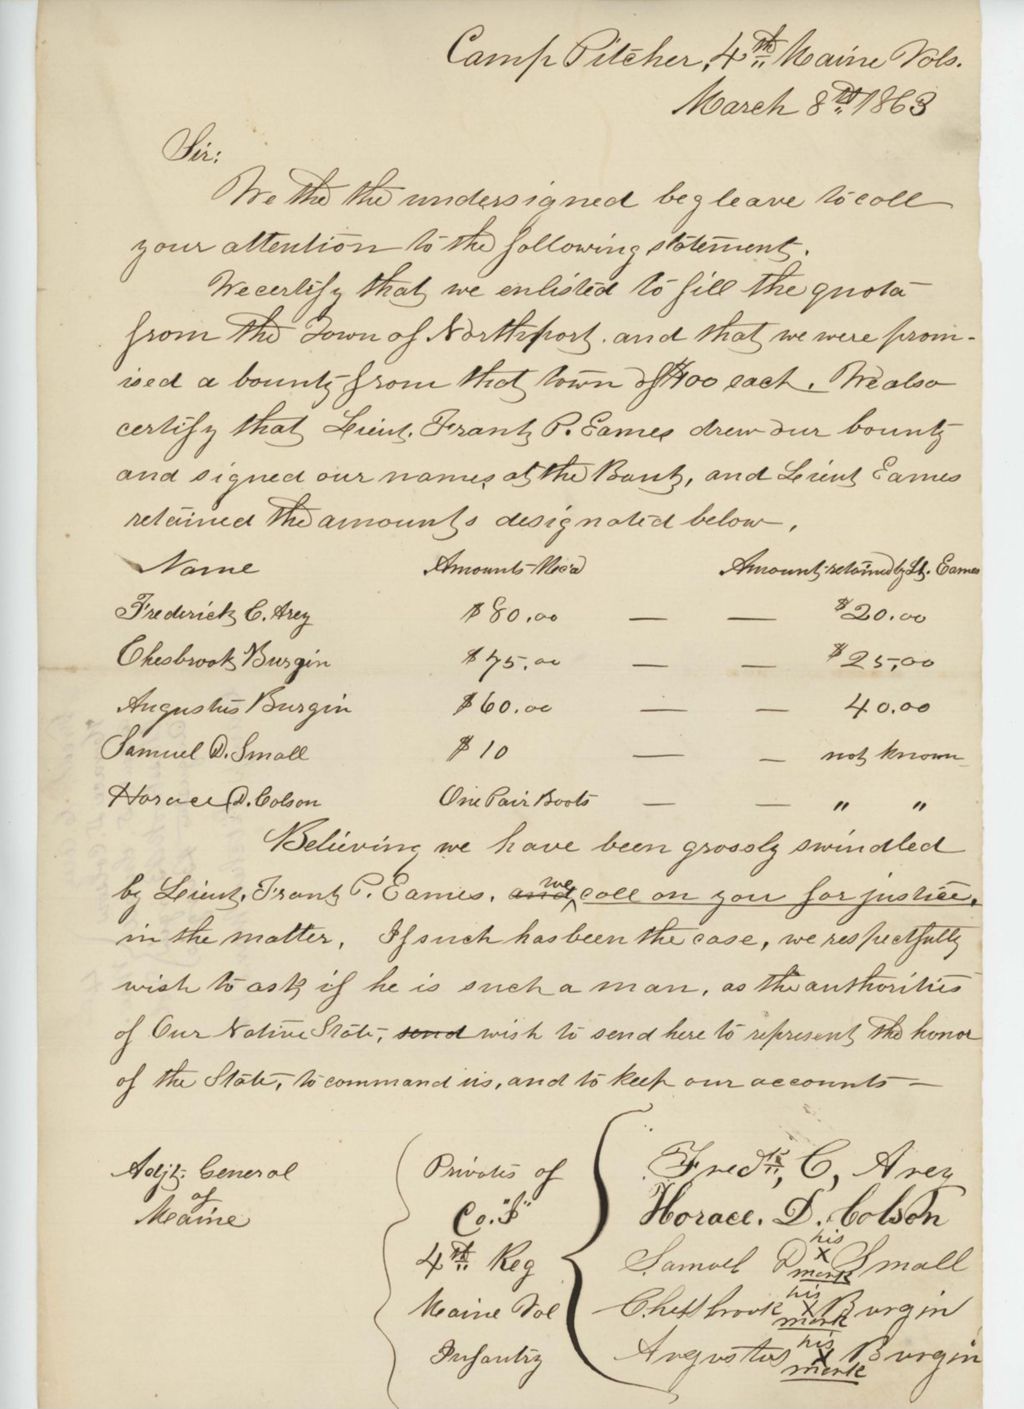 Camp Pitcher, 4th Maine Vols.
March 8th 1863
Sir:
We the the undersigned beg leave to call
your attention to the following statement.
We certify that we enlisted to fill the quota
from the Town of Northport. and that we were prom-
ised a bounty from that town of $100 each. We also
certify that Lieut. Frank P. Eames drew our bounty
and signed our names at the Bank, and Lieut Eames
retained the amounts designated below.
Name Amounts Rec'd Amount retained by Lt. Eames
Frederick C. Arey $80.00 — — $20.00
Chesbrook Burgin $75.00 — — $25,00
Augustus Burgin $60.00 — — 40.00
Samuel D. Small $10 — — not known
Horace D. Colson One Pair Boots — — " "
Believing we have been grossly swindled
by Lieut. Frank P. Eames. and we call on you for justice,
in the matter. If such has been the case, we respectfully
wish to ask if he is such a man, as the authorities
of Our Native State, send wish to send here to represent the honor
of the State, to command us, and to keep our accounts —
Adjt. General
of
Maine
Privates of
Co. "I"
4th Reg
Maine Vol
Infantry
Fredk, C, Arey
Horace. D. Colson
Samuel D his x mark Small
Chesbrook his x mark Burgin
Augustus his x mark Burgin